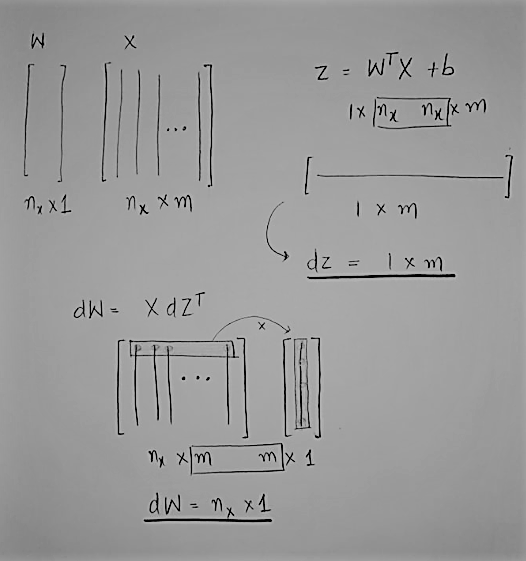 W X
...
n_x x 1 n_x x m
z = W^T X + b
1 x n_x n_x x m
1 x m
dz = 1 x m
dW = X dZ^T
x
...
n_x x m m x 1
dW = n_x x 1